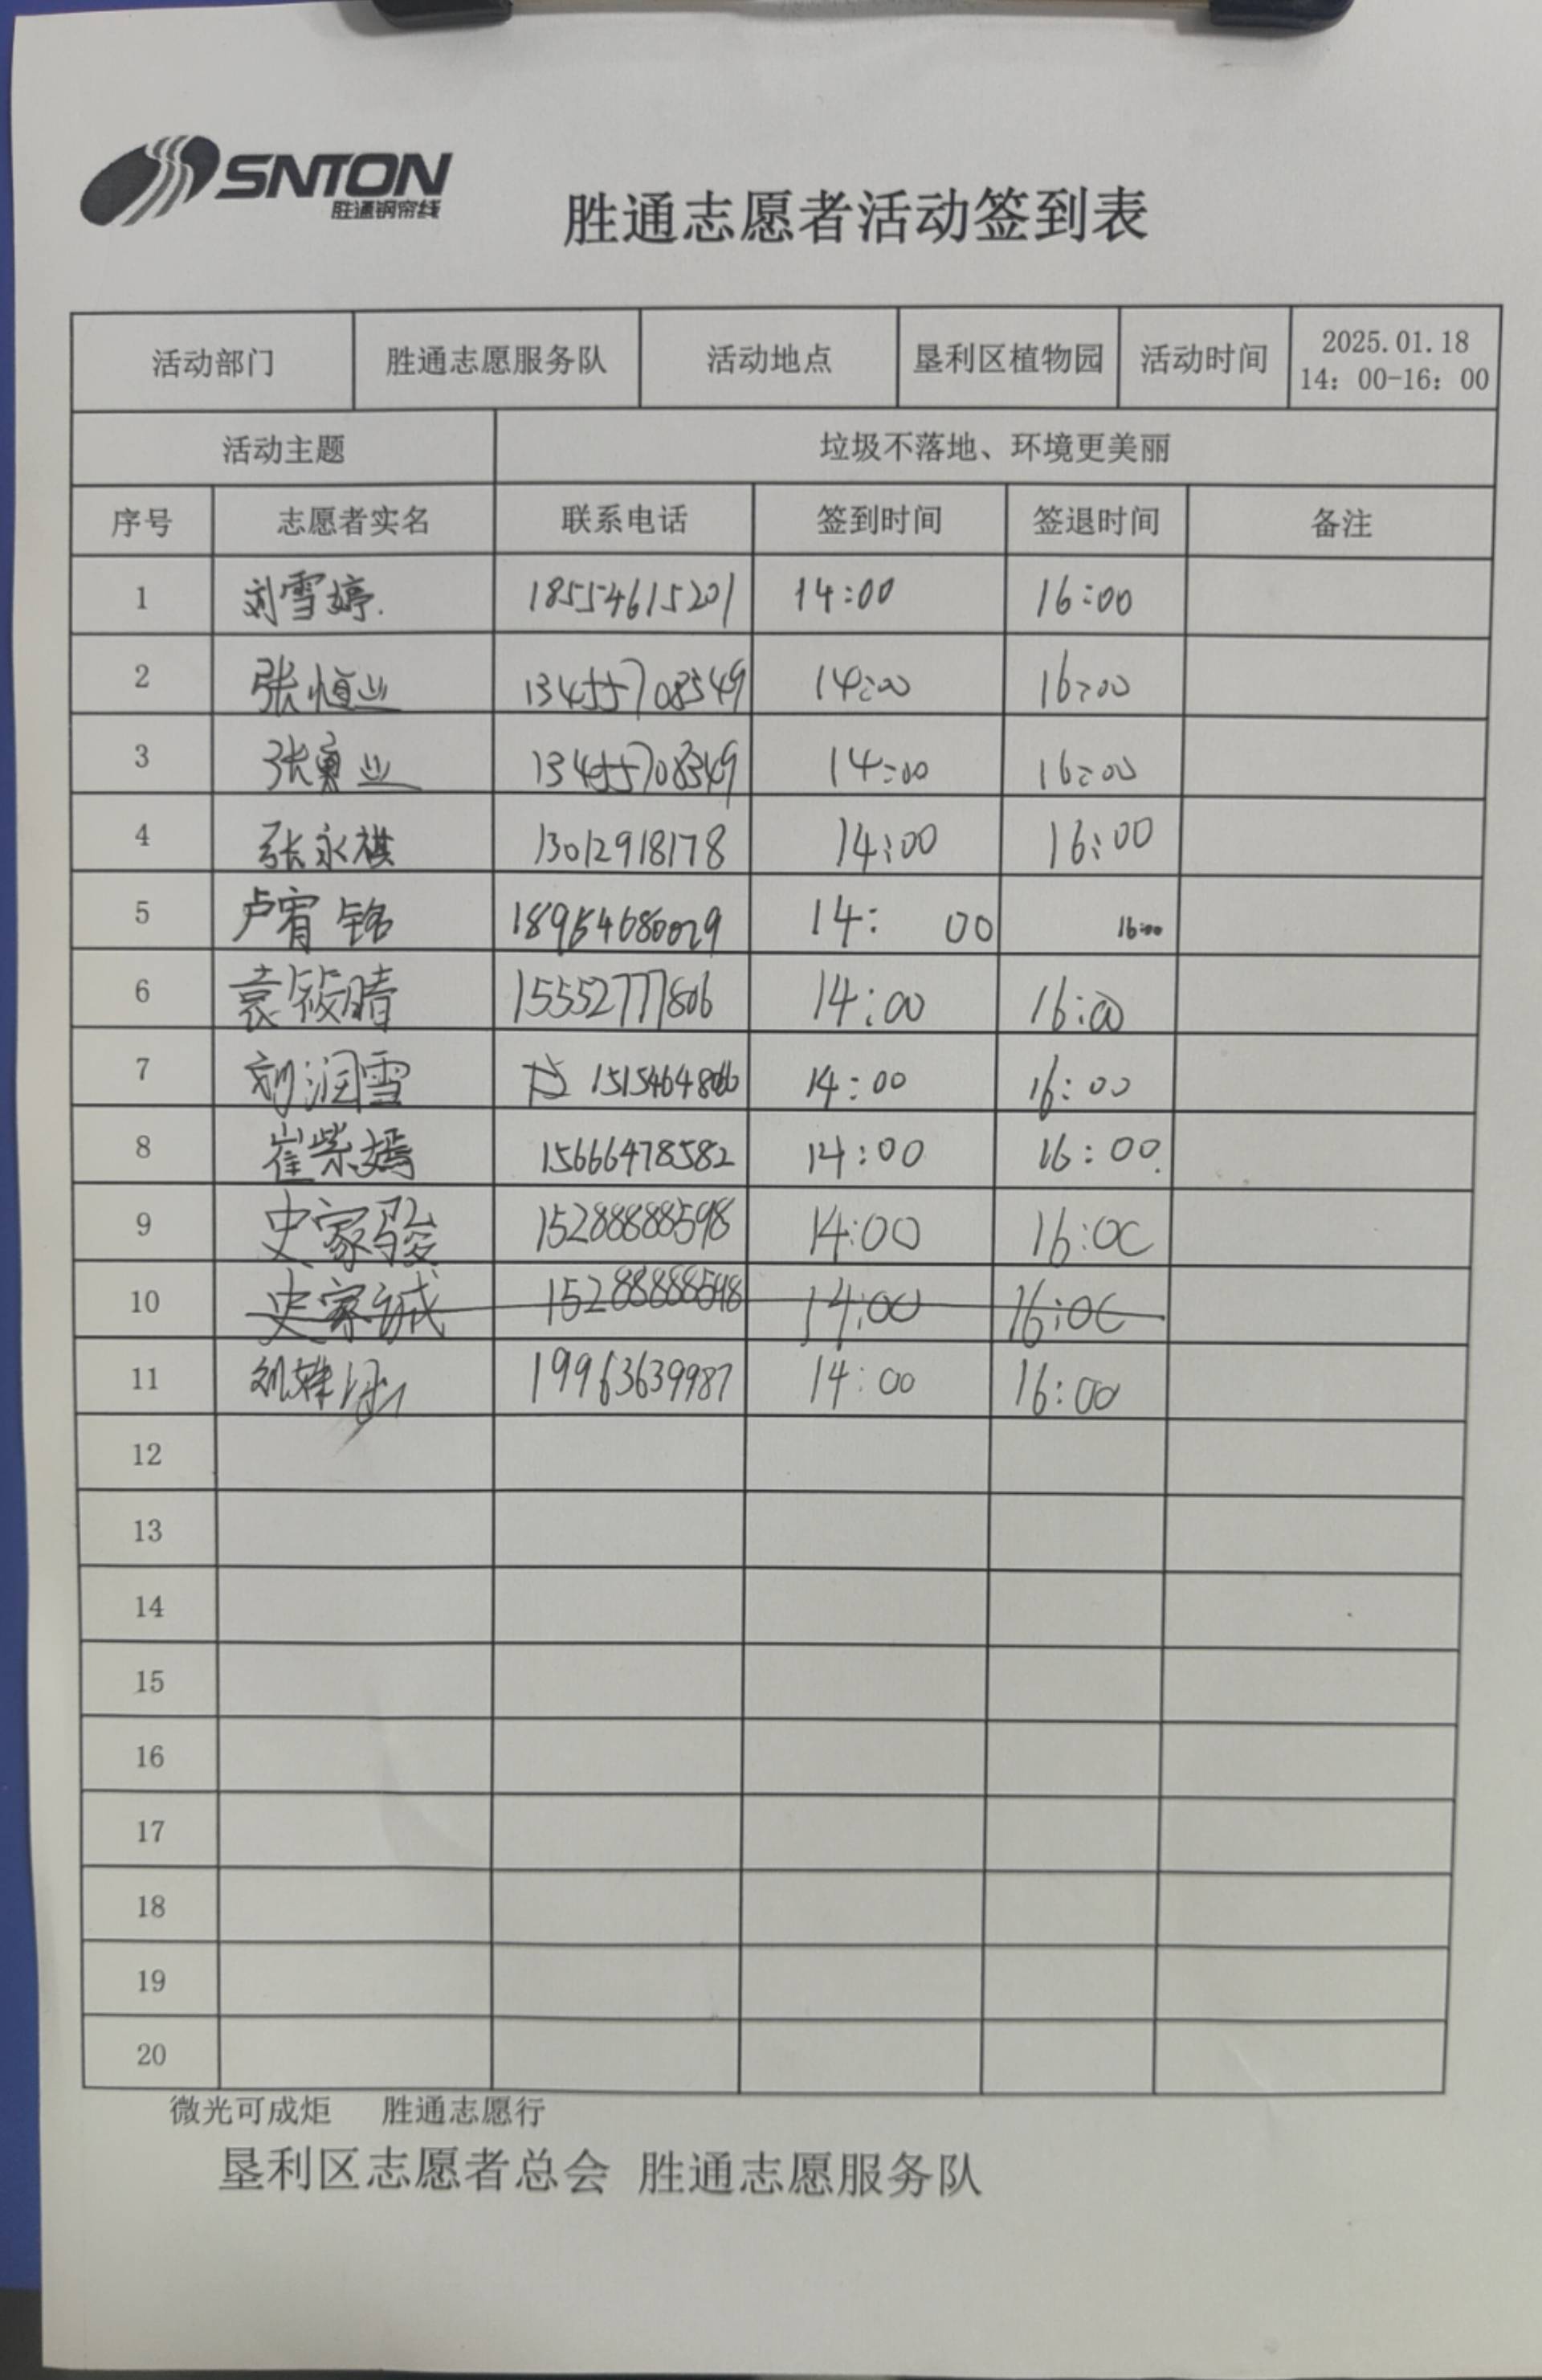 SNTON
胜通钢帘线
胜通志愿者活动签到表
活动部门 胜通志愿服务队 活动地点 垦利区植物园 活动时间 2025.01.18
14：00-16：00
活动主题 垃圾不落地、环境更美丽
序号 志愿者实名 联系电话 签到时间 签退时间 备注
1 刘雪婷. 18554615201 14:00 16:00
2 张恒业 13455708549 14:00 16:00
3 张勇业 13455708549 14:00 16:00
4 张永祺 13012918178 14:00 16:00
5 卢宥铭 18954680029 14: 00 16:00
6 袁筱晴 15552777806 14:00 16:00
7 刘润雪 14:00 16:00
8 崔紫嫣 15666478582 14:00 16:00.
9 史家骏 15288888598 14:00 16:00
10 史家诚 15288888598 14:00 16:00
11 19963639987 14:00 16:00
12
13
14
15
16
17
18
19
20
微光可成炬 胜通志愿行
垦利区志愿者总会 胜通志愿服务队